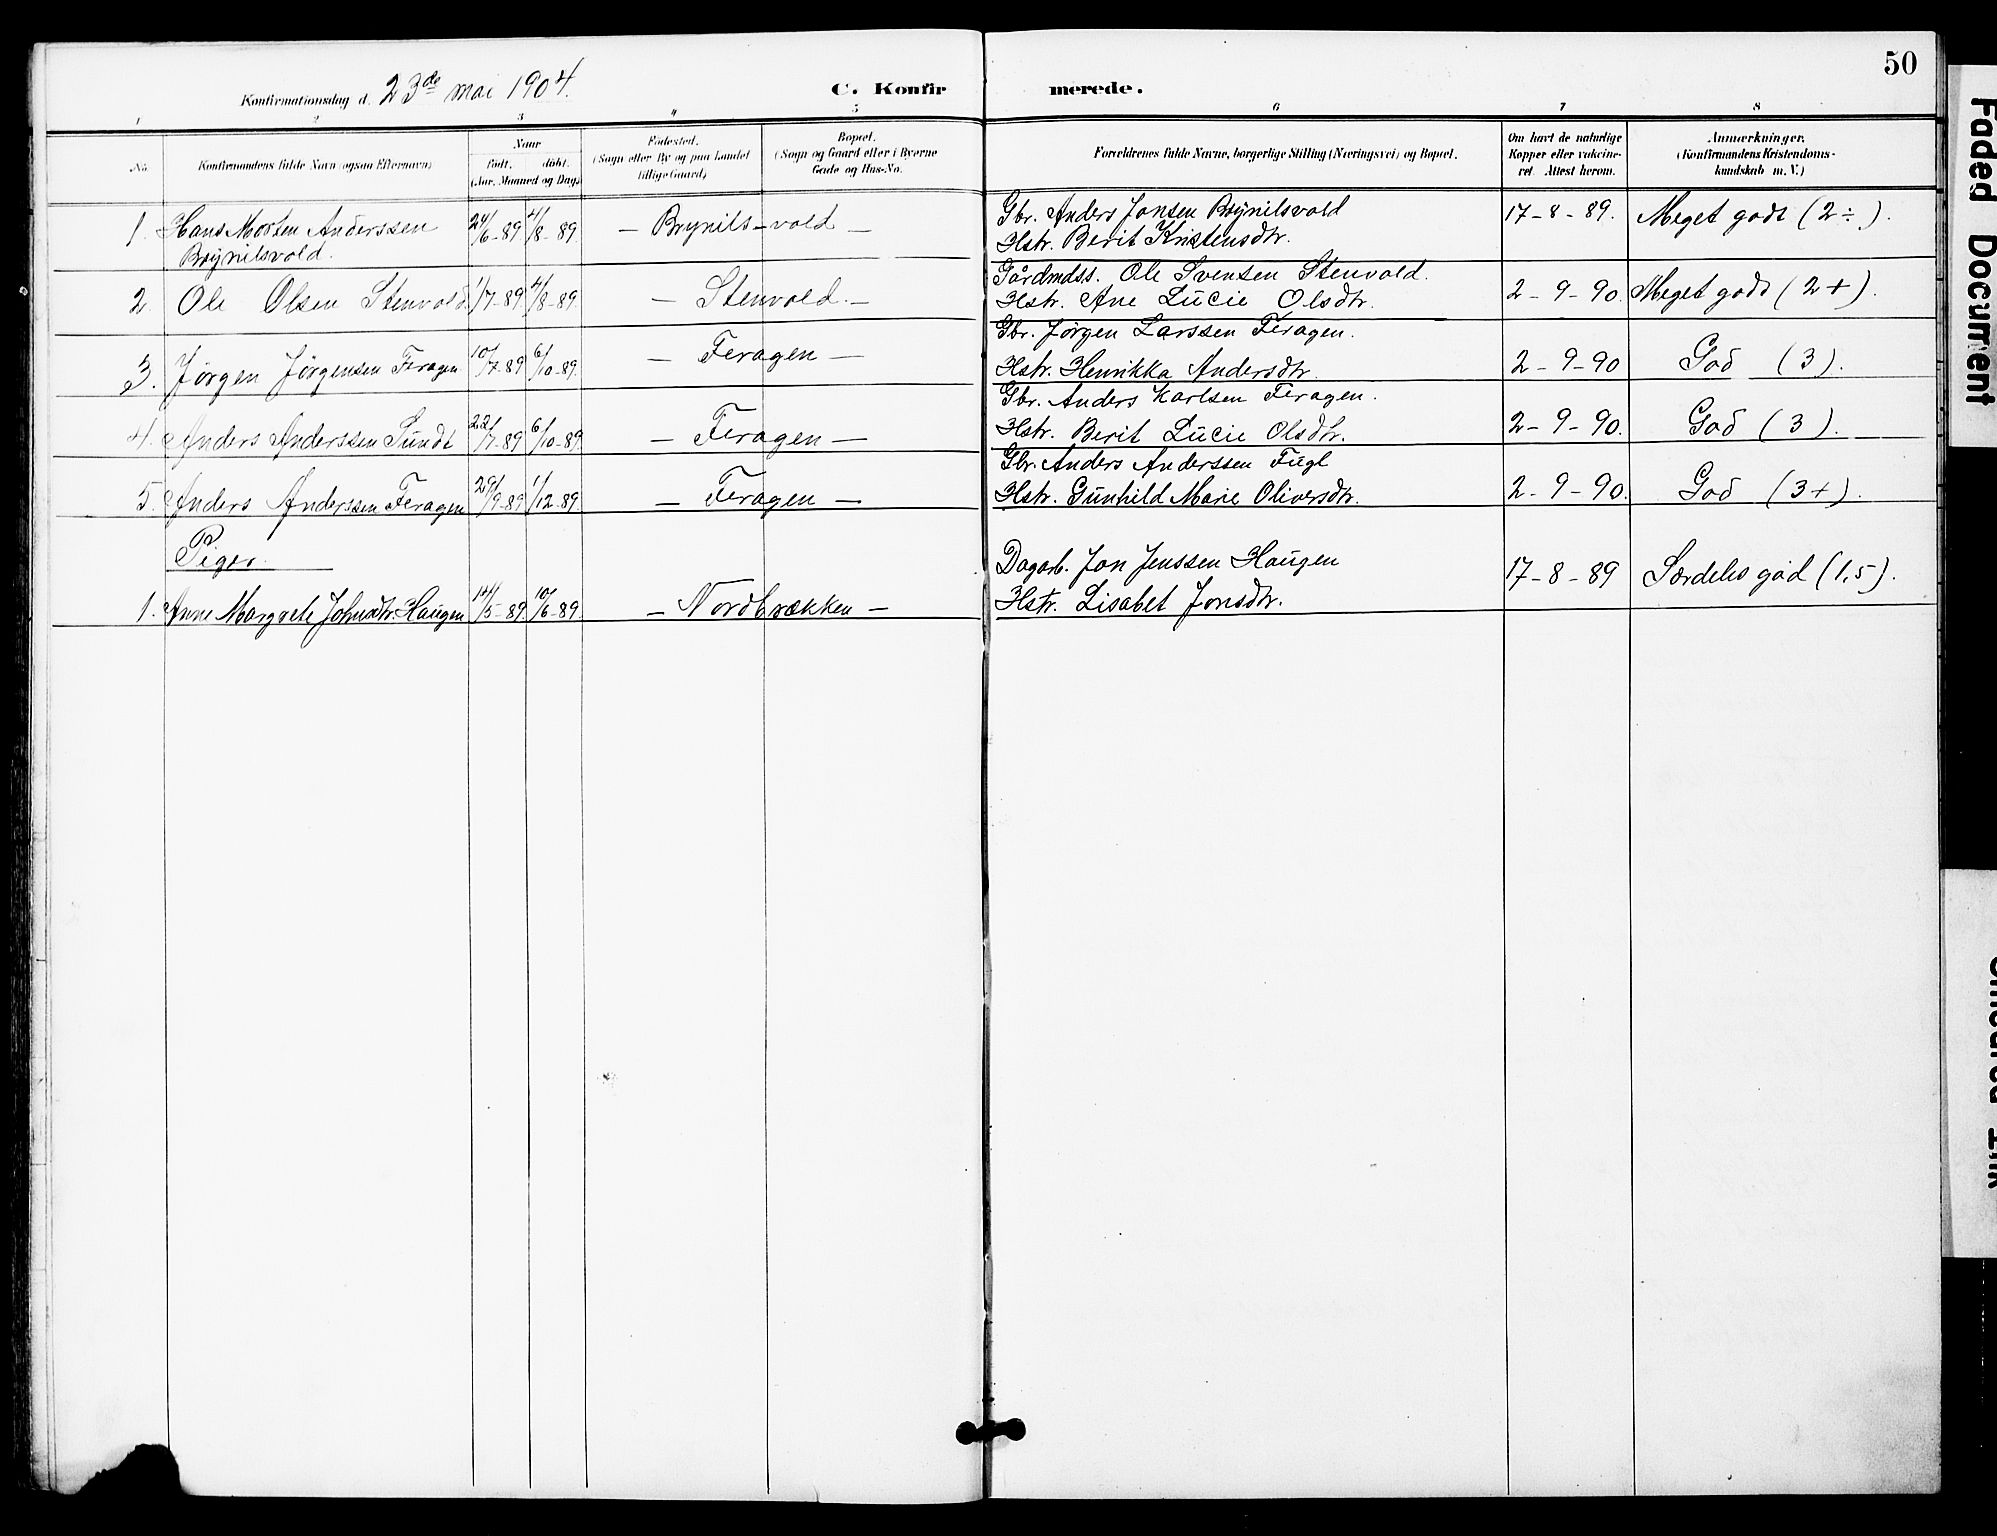 50
Konfirmationsdag d. 23de mai 1904.
C. Konfirmerede.
1 2 3 4 5 6 7 8
No.
Konfirmandens fulde Navn (ogsaa Efternavn)
Naar
født. døbt.
(Aar, Maaned og Dag)
Fødested.
(Sogn eller By og paa Landet
tillige Gaard)
Bopæl.
(Sogn og Gaard eller i Byerne
Gade og Hus-No.
Forældrenes fulde Navne, borgerlige Stilling (Næringsvei) og Bopæl.
Om havt de naturlige
Kopper eller vakcine-
ret. Attest herom.
Anmærkninger.
(Konfirmandens Kristendoms-
kundskab m. V.)
1. Hans Morten Anderssen 24/6-89 4/8-89 — Brynils-vold — Gbr. Anders Jonsen Brynilsvold 17-8-89. Meget godt (2÷).
Brynilsvold. Hstr. Berit Kristensdtr.
2. Ole Olsen Stenvold. 1/7-89 4/8-89. — Stenvold. — Gårdmdss. Ole Svensen Stenvold. 2-9-90. Meget godt (2+).
Hstr. Ane Lucie Olsdtr.
3. Jørgen Jørgensen Feragen 10/7-89 6/10-89. — Feragen — Gbr. Jørgen Larssen Feragen. 2-9-90 God (3).
Hstr. Henrikka Andersdtr.
4. Anders Anderssen Sundt 22/7-89 6/10-89. — Feragen — Gbr. Anders Karlsen Feragen. 2-9-90. God (3).
Hstr. Berit Lucie Olsdtr.
5. Anders Anderssen Feragen 29/9-89 1/12-89. — Feragen — Gbr. Anders Anderssen Fugl 2-9-90. God (3+).
Hstr. Gunhild Marie Oliversdtr.
Piger.
1. Anne Margrete Johnsdtr. Haugen 14/5-89. 10/6-89. — Nordbrækken — Dagarb. Jon Jenssen Haugen 17-8-89 Særdeles god (1,5).
Hstr. Lisabet Jonsdtr.
Faded Document